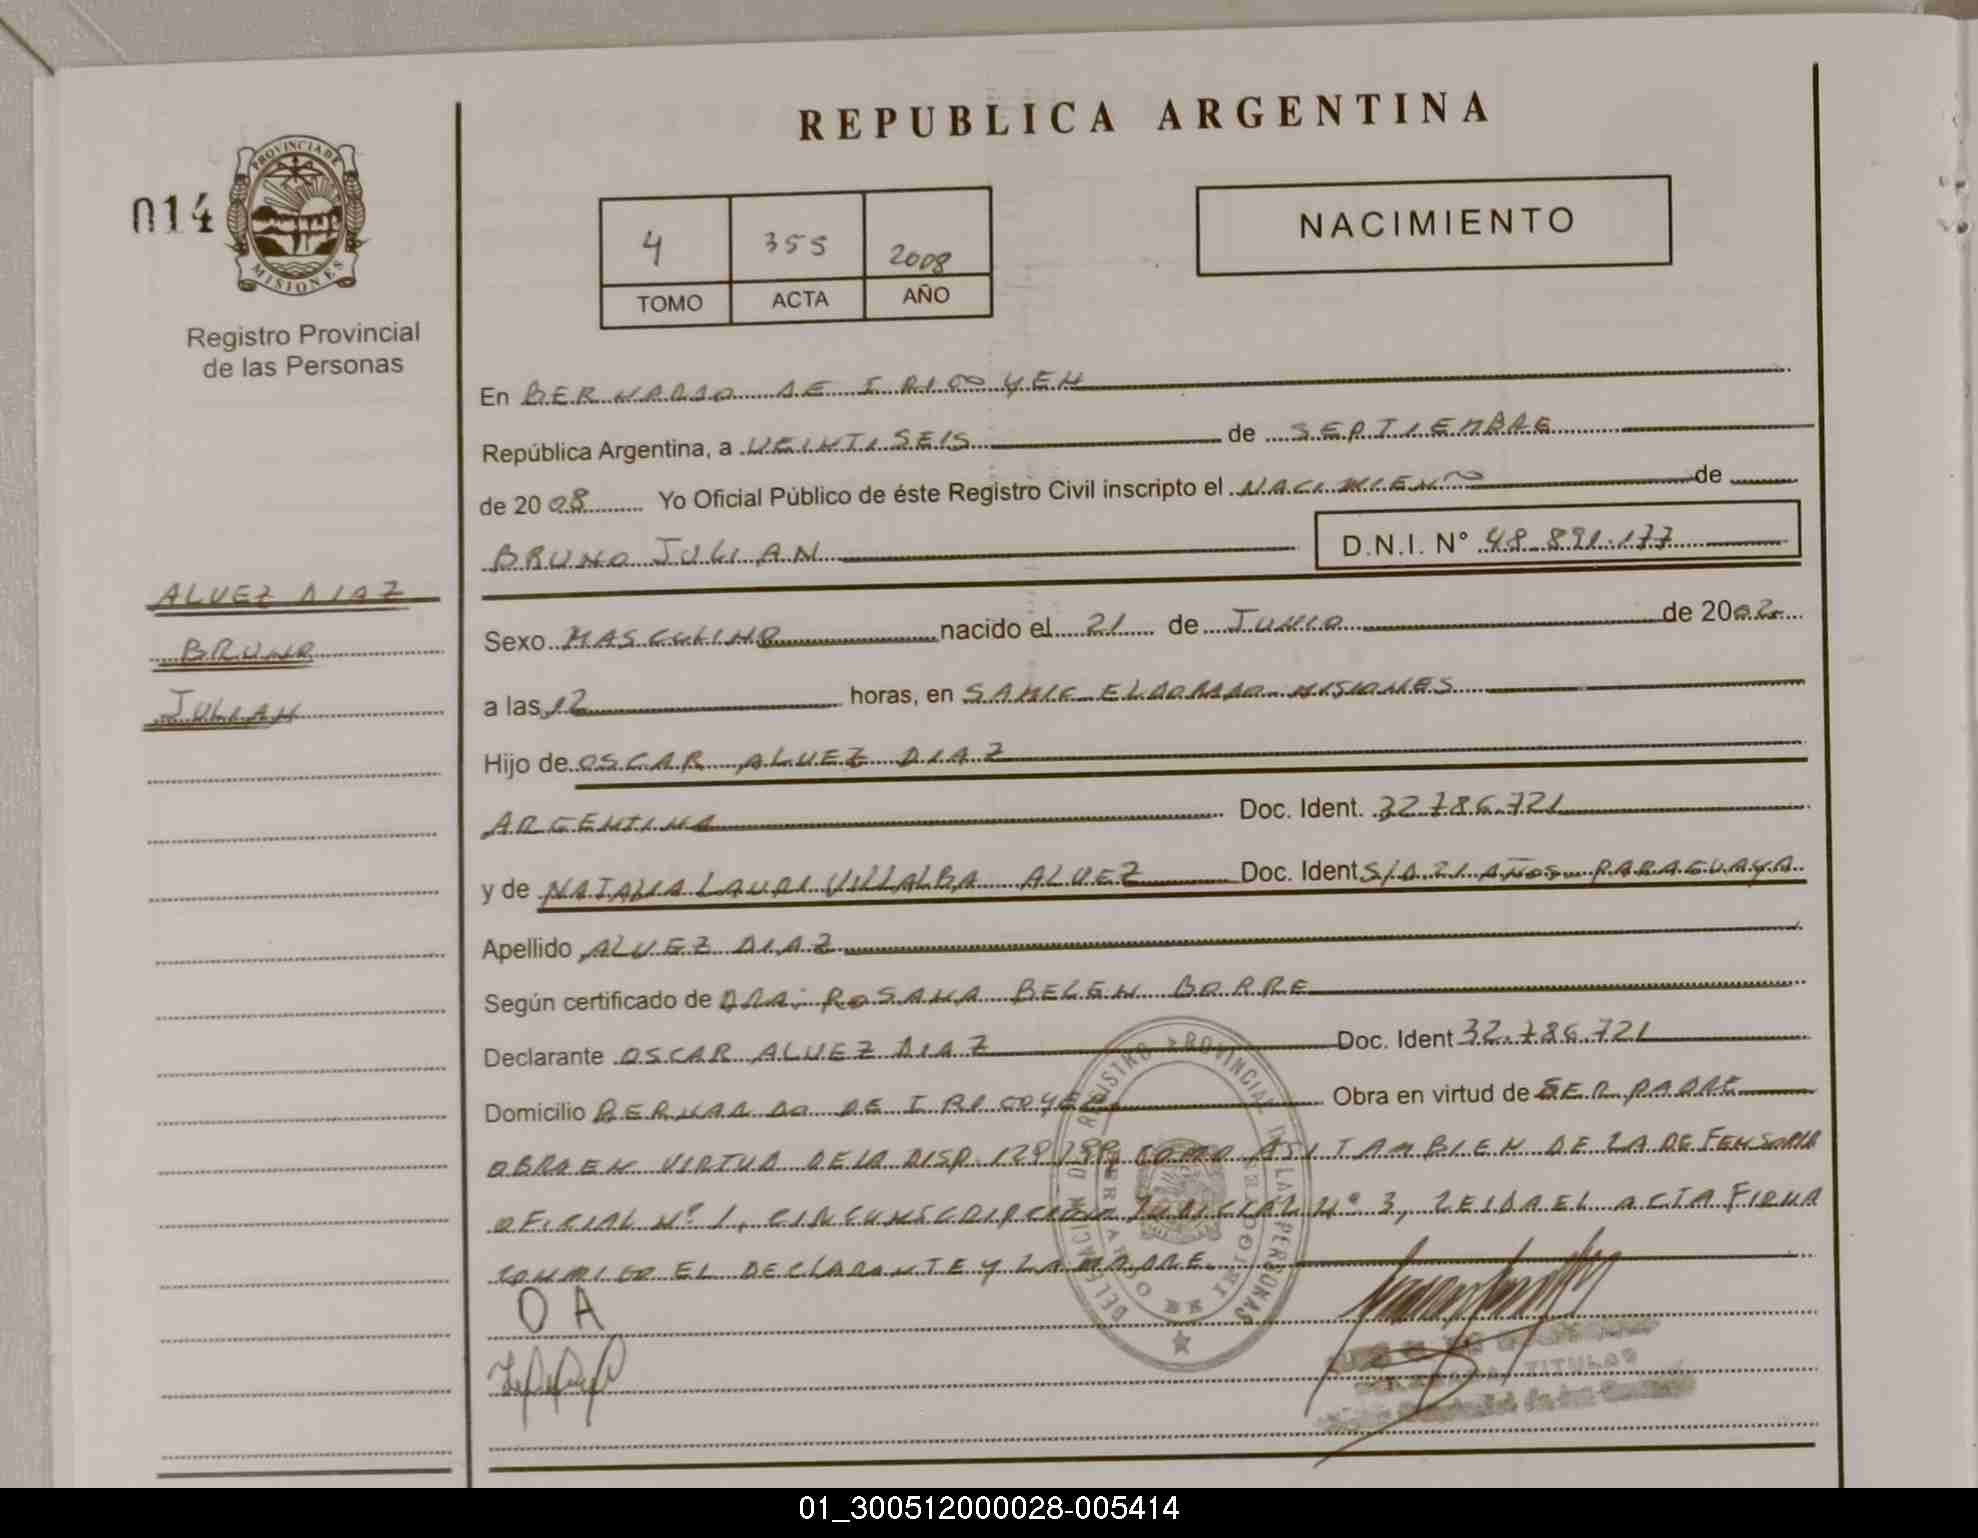 REPUBLICA ARGENTINA
PROVINCIA DE
MISIONES
014
Registro Provincial
de las Personas
4 355 2008
TOMO ACTA AÑO
NACIMIENTO
En BERNARDO DE IRIGOYEN
República Argentina, a VEINTISEIS de SEPTIEMBRE
de 2008 Yo Oficial Público de éste Registro Civil inscripto el NACIMIENTO de
BRUNO JULIAN D.N.I. N° 48.891.177
ALVEZ DIAZ
BRUNO
JULIAN
Sexo MASCULINO nacido el 21 de JUNIO de 2002
a las 12 horas, en SAMIC ELDORADO MISIONES
Hijo de OSCAR ALVEZ DIAZ
ARGENTINA Doc. Ident. 32.786.721
y de NATALIA LAURI VILLALBA ALVEZ Doc. Ident S/D 21 AÑOS PARAGUAYA
Apellido ALVEZ DIAZ
Según certificado de DRA: ROSANA BELEN BORRE
Declarante OSCAR ALVEZ DIAZ Doc. Ident 32.786.721
Domicilio BERNARDO DE IRIGOYEN Obra en virtud de SER PADRE
OBRA EN VIRTUD DE LA DISP. 129/99 COMO ASI TAMBIEN DE LA DEFENSORIA
OFICIAL N° 1, CIRCUNSCRIPCION JUDICIAL N° 3, LEIDA EL ACTA FIRMA
CONMIGO EL DECLARANTE Y LA MADRE.
O A
DELEGACION DEL REGISTRO PROVINCIAL DE LAS PERSONAS
BERNARDO DE IRIGOYEN
TITULAR
01_300512000028-005414